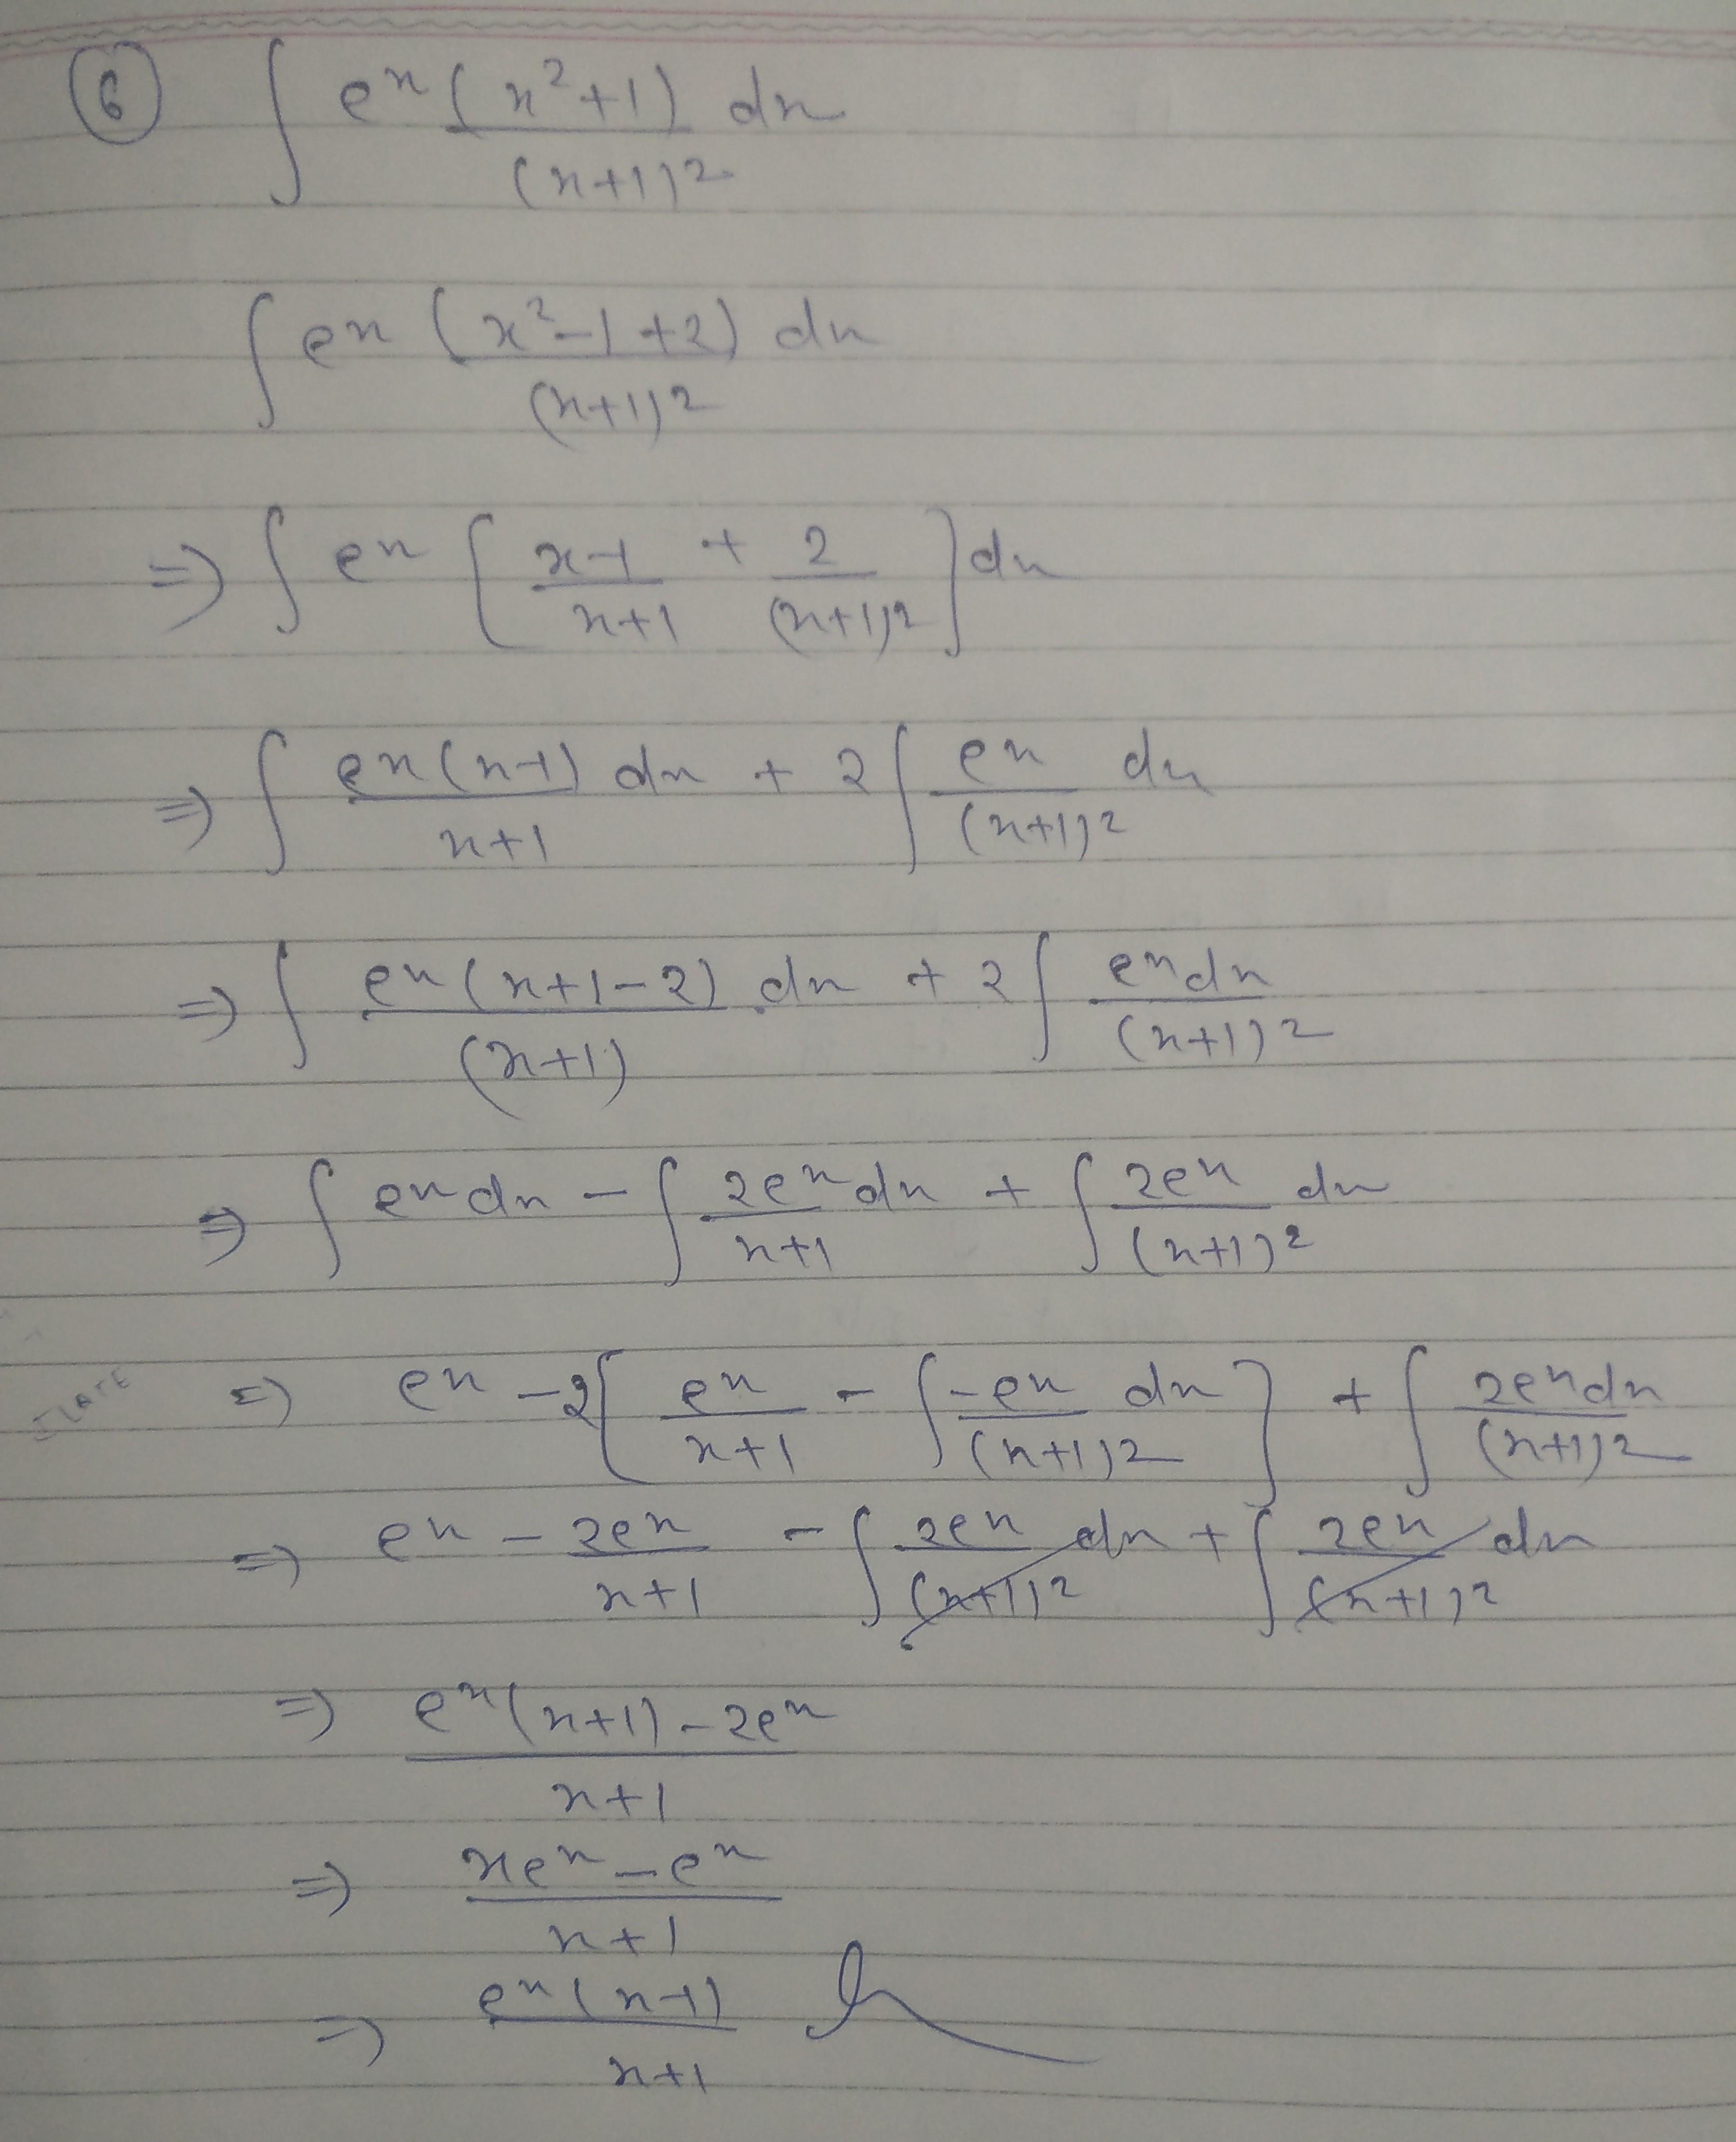 6 ∫ eˣ (x²+1) / (x+1)² dx
∫ eˣ (x²-1+2) / (x+1)² dx
⇒ ∫ eˣ [ (x-1)/(x+1) + 2/(x+1)² ] dx
⇒ ∫ eˣ(x-1)/(x+1) dx + 2 ∫ eˣ/(x+1)² dx
⇒ ∫ eˣ(x+1-2)/(x+1) dx + 2 ∫ eˣdx/(x+1)²
⇒ ∫ eˣdx - ∫ 2eˣ/(x+1) dx + ∫ 2eˣ/(x+1)² dx
⇒ eˣ - 2[ eˣ/(x+1) - ∫ -eˣ/(x+1)² dx ] + ∫ 2eˣdx/(x+1)²
⇒ eˣ - 2eˣ/(x+1) - ∫ 2eˣ/(x+1)² dx + ∫ 2eˣ/(x+1)² dx
⇒ (eˣ(x+1)-2eˣ)/(x+1)
⇒ (xeˣ-eˣ)/(x+1)
⇒ eˣ(x-1)/(x+1)